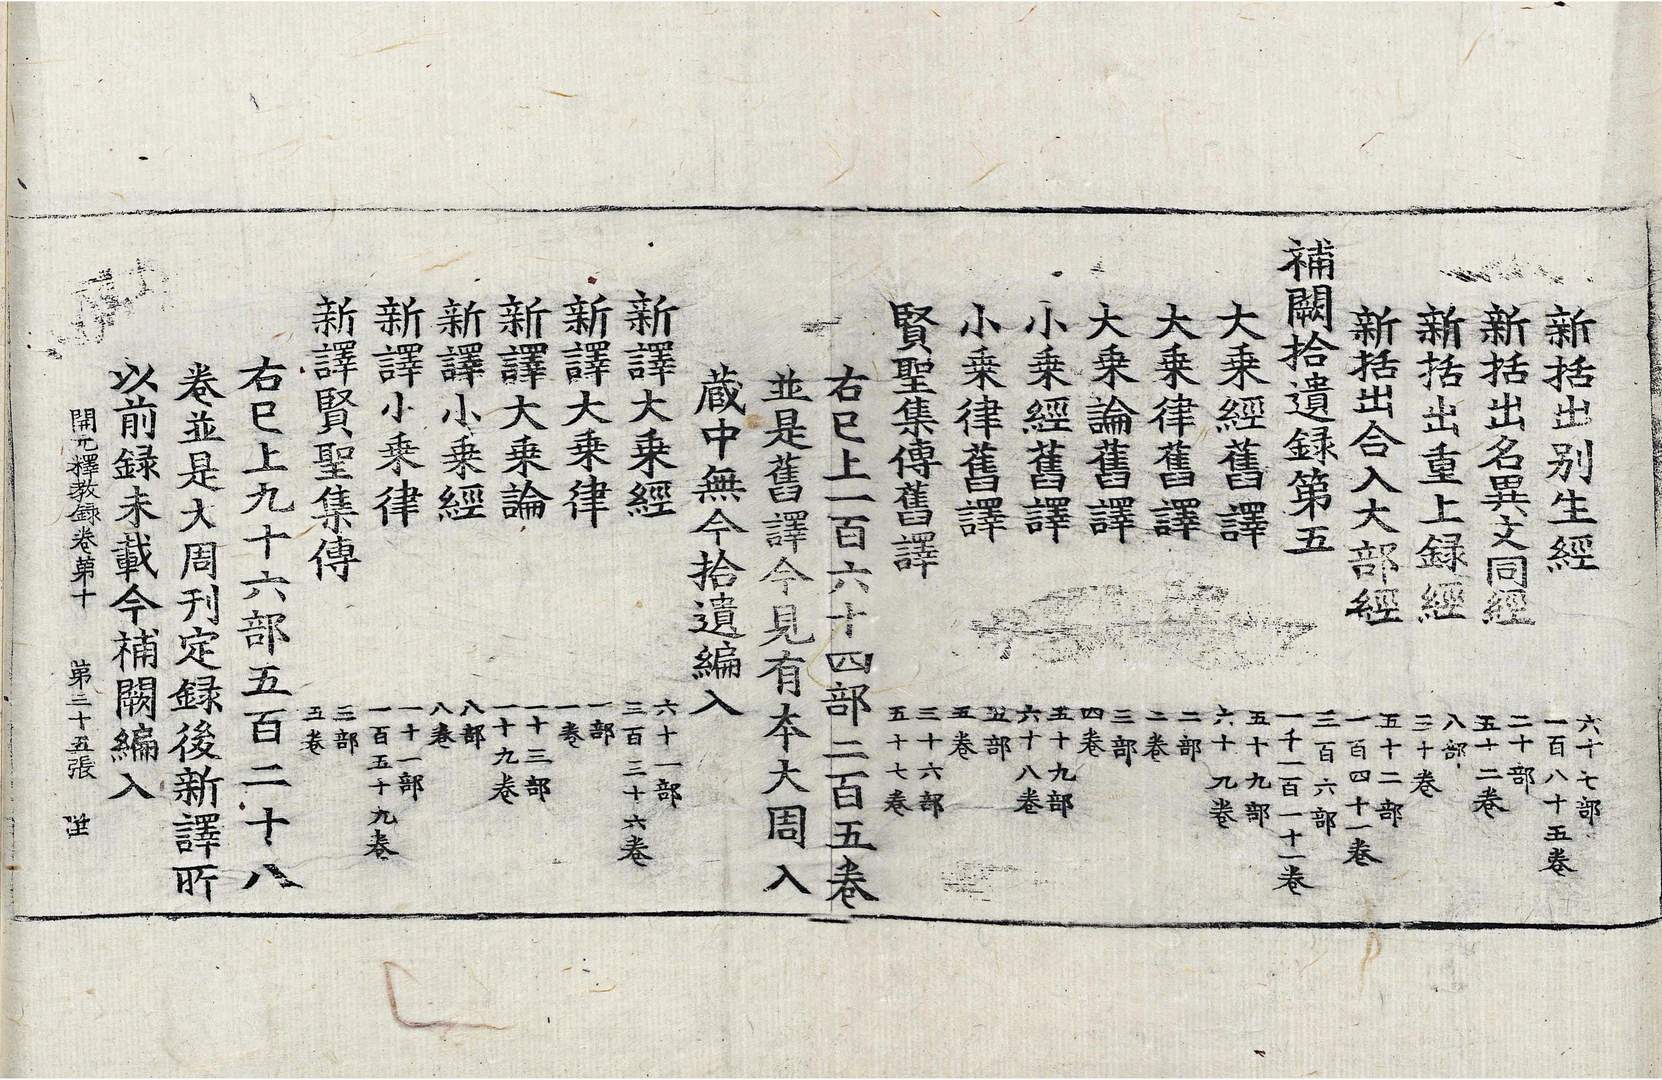 新括出别生經 六十七部 一百八十五卷
新括出名異文同經 二十部 五十二卷
新括出重上録經 八部 三十卷
新括出合入大部經 五十二部 一百四十一卷
補闕拾遺録第五 三百六部 一千一百一十一卷
大乗經舊譯 五十九部 六十九卷
大乗律舊譯 二部 二卷
大乗論舊譯 三部 四卷
小乗經舊譯 五十九部 六十八卷
小乗律舊譯 五部 五卷
賢聖集傳舊譯 三十六部 五十七卷
右已上一百六十四部二百五卷
並是舊譯今見有本大周入
蔵中無今拾遺編入
新譯大乗經 六十一部 三百三十六卷
新譯大乗律 一部 一卷
新譯大乗論 一十三部 一十九卷
新譯小乗經 八部 八卷
新譯小乗律 一十一部 一百五十九卷
新譯賢聖集傳 三部 五卷
右已上九十六部五百二十八
卷並是大周刊定録後新譯所
以前録未載今補闕編入
開元釋教録卷第十 第三十五張